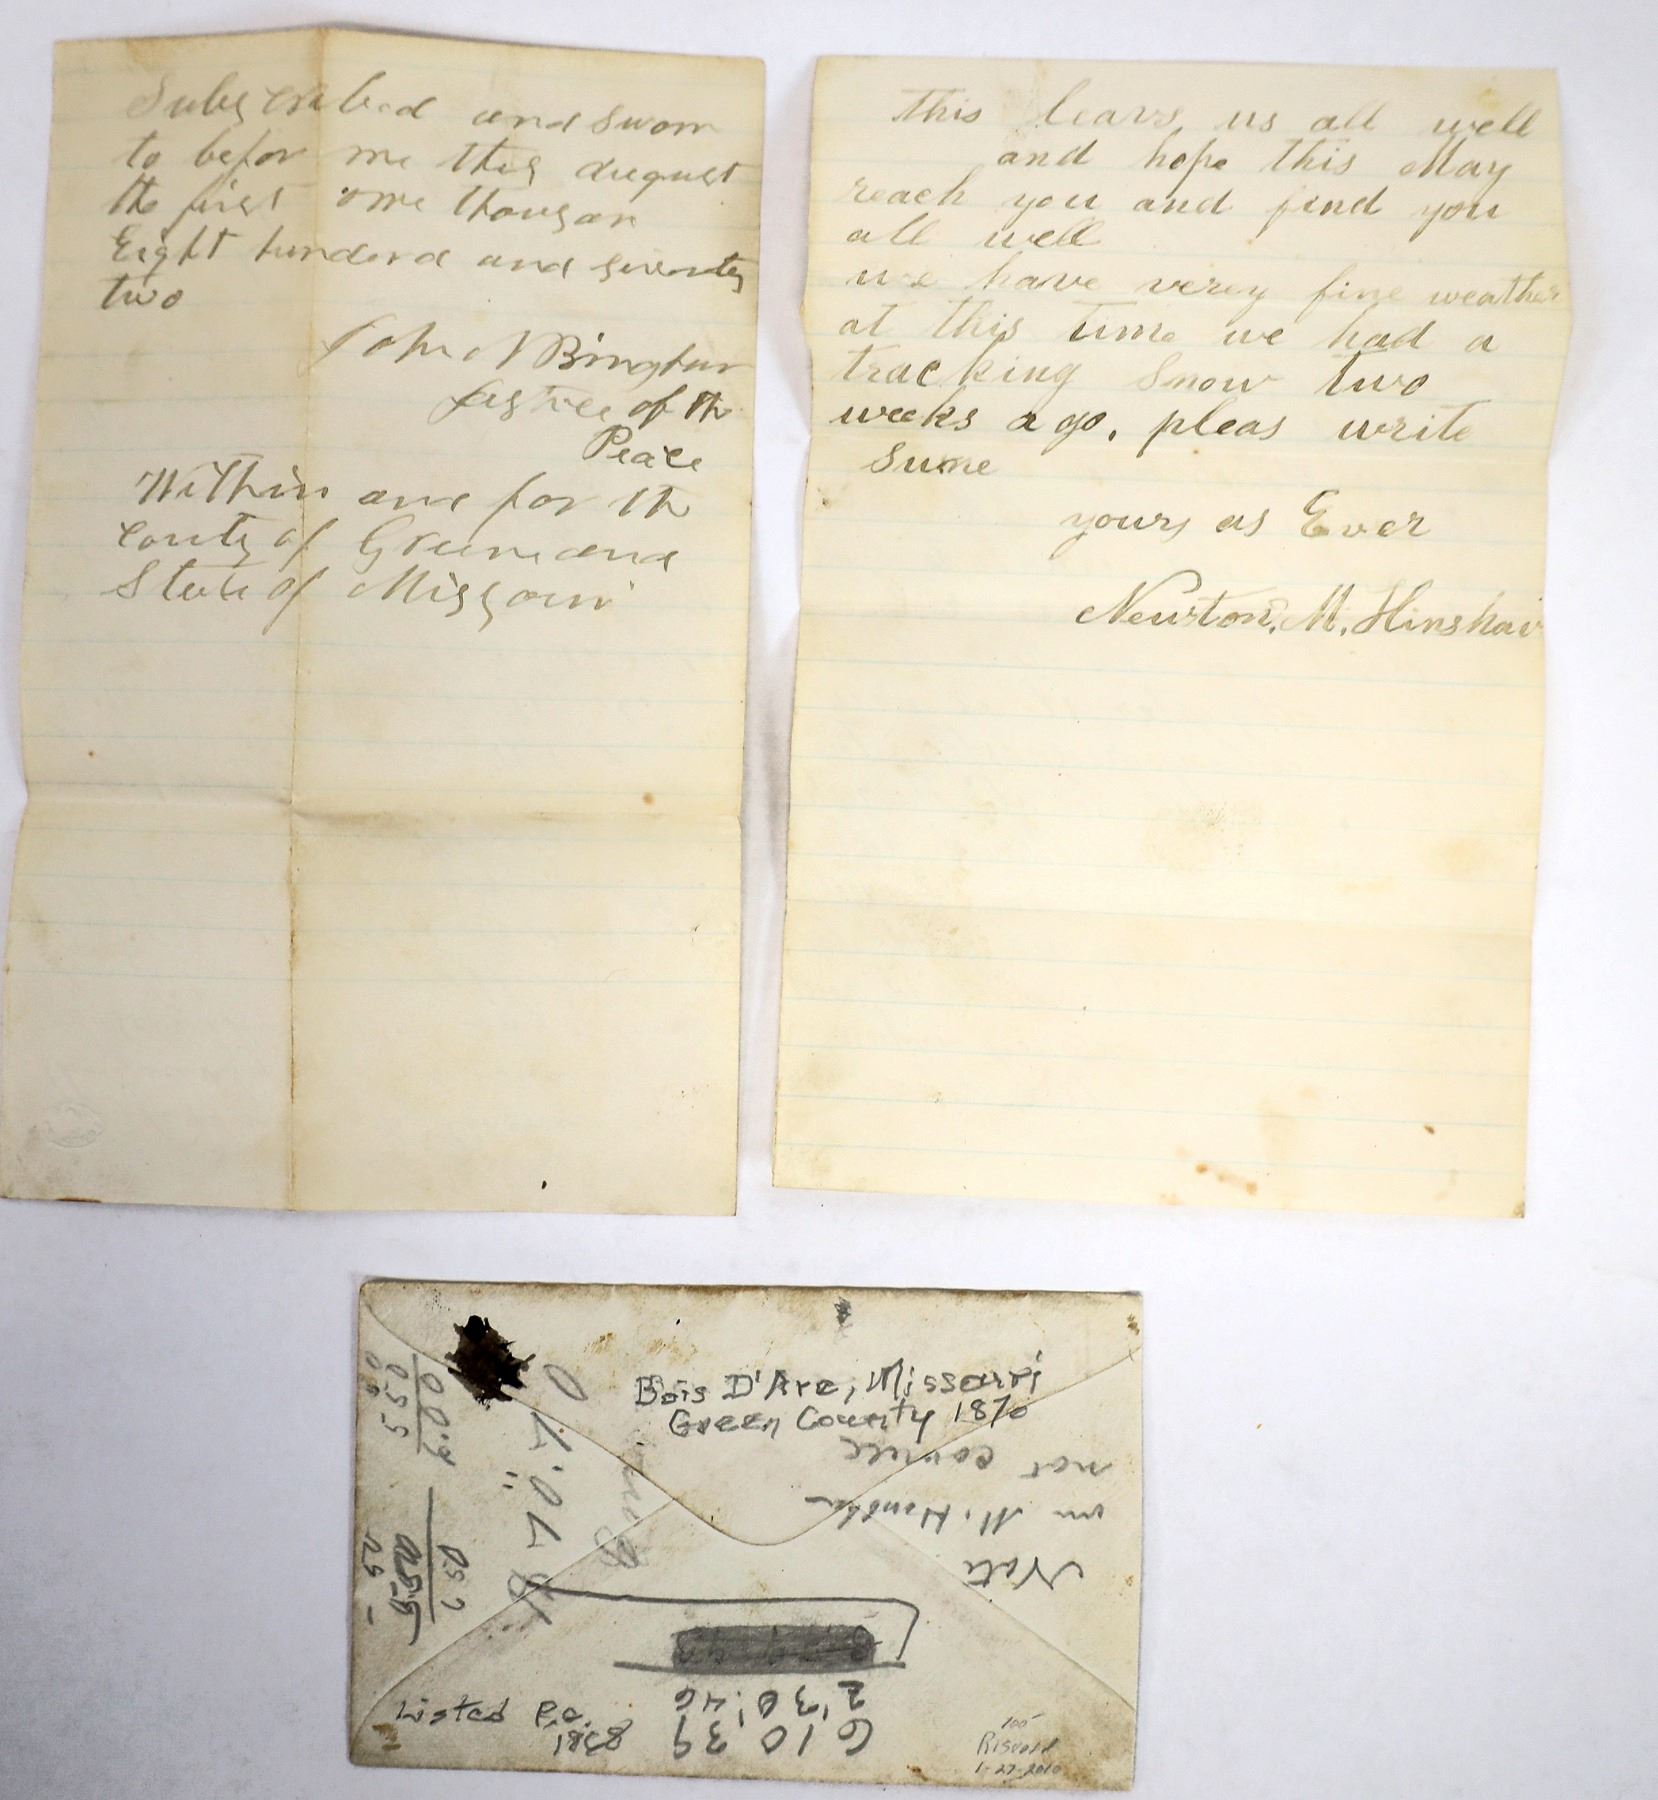 Subscribed and sworn
to befor me this august
the first one thousan
Eight hundord and seventy
two
John N Bingham
Justice of the
Peace
Within and for th
County of Green and
State of Missouri
this leavs us all well
and hope this May
reach you and find you
all well
we have verey fine weather
at this time we had a
tracking Snow two
weeks ago, pleas write
Sune
yours as Ever
Newton, M. Hinshaw
Bois D'Arc, Missouri
Green County 1870
not
M.
Note
550
6.00
650
2,30.46
6 10 39
Listed P.O.
1858
100
1-27-2010